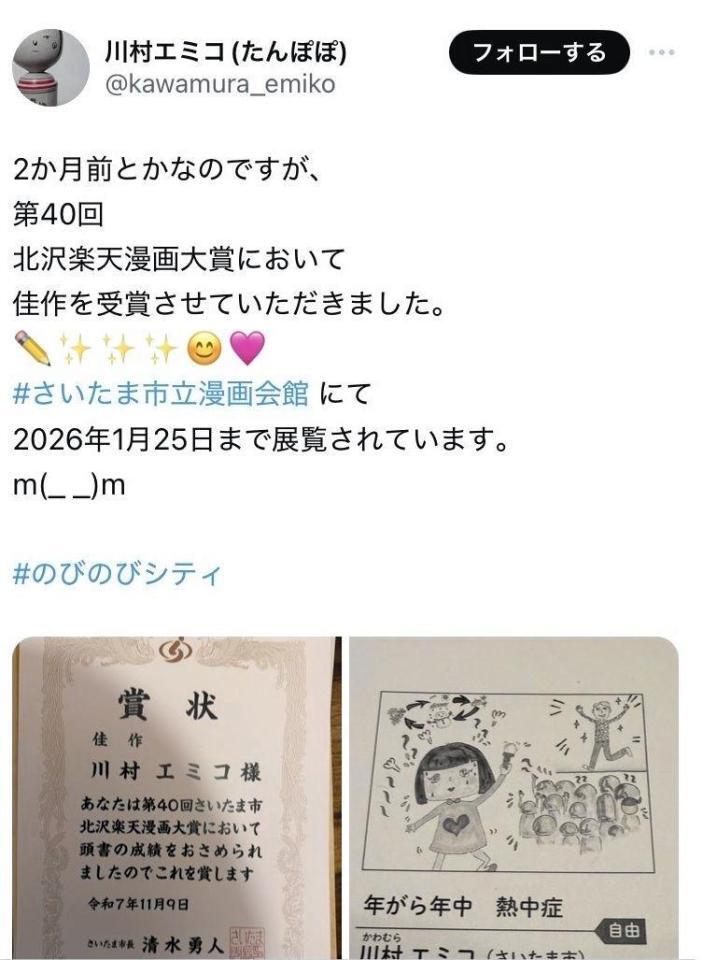 川村エミコ(たんぽぽ)
@kawamura_emiko
フォローする
2か月前とかなのですが、
第40回
北沢楽天漫画大賞において
佳作を受賞させていただきました。
✏️✨✨✨😊💗
#さいたま市立漫画会館 にて
2026年1月25日まで展覧されています。
m(_ _)m
#のびのびシティ
賞 状
佳 作
川村 エミコ様
あなたは第40回さいたま市
北沢楽天漫画大賞において
頭書の成績をおさめられ
ましたのでこれを賞します
令和7年11月9日
さいたま市長 清水勇人
年がら年中 熱中症
自由
かわむら
川村 エミコ(さいたま市)